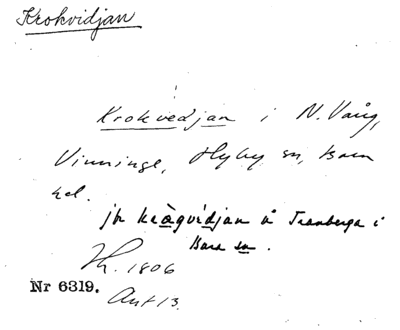 Krokvidjan
Krokvedjan i N. Vång,
Vinninge, Hyby sn, Bara
hd.
jfr kràgvidjan å Tranberga i
Bara sn.
Th. 1806
Nr 6319.
Ant 13.